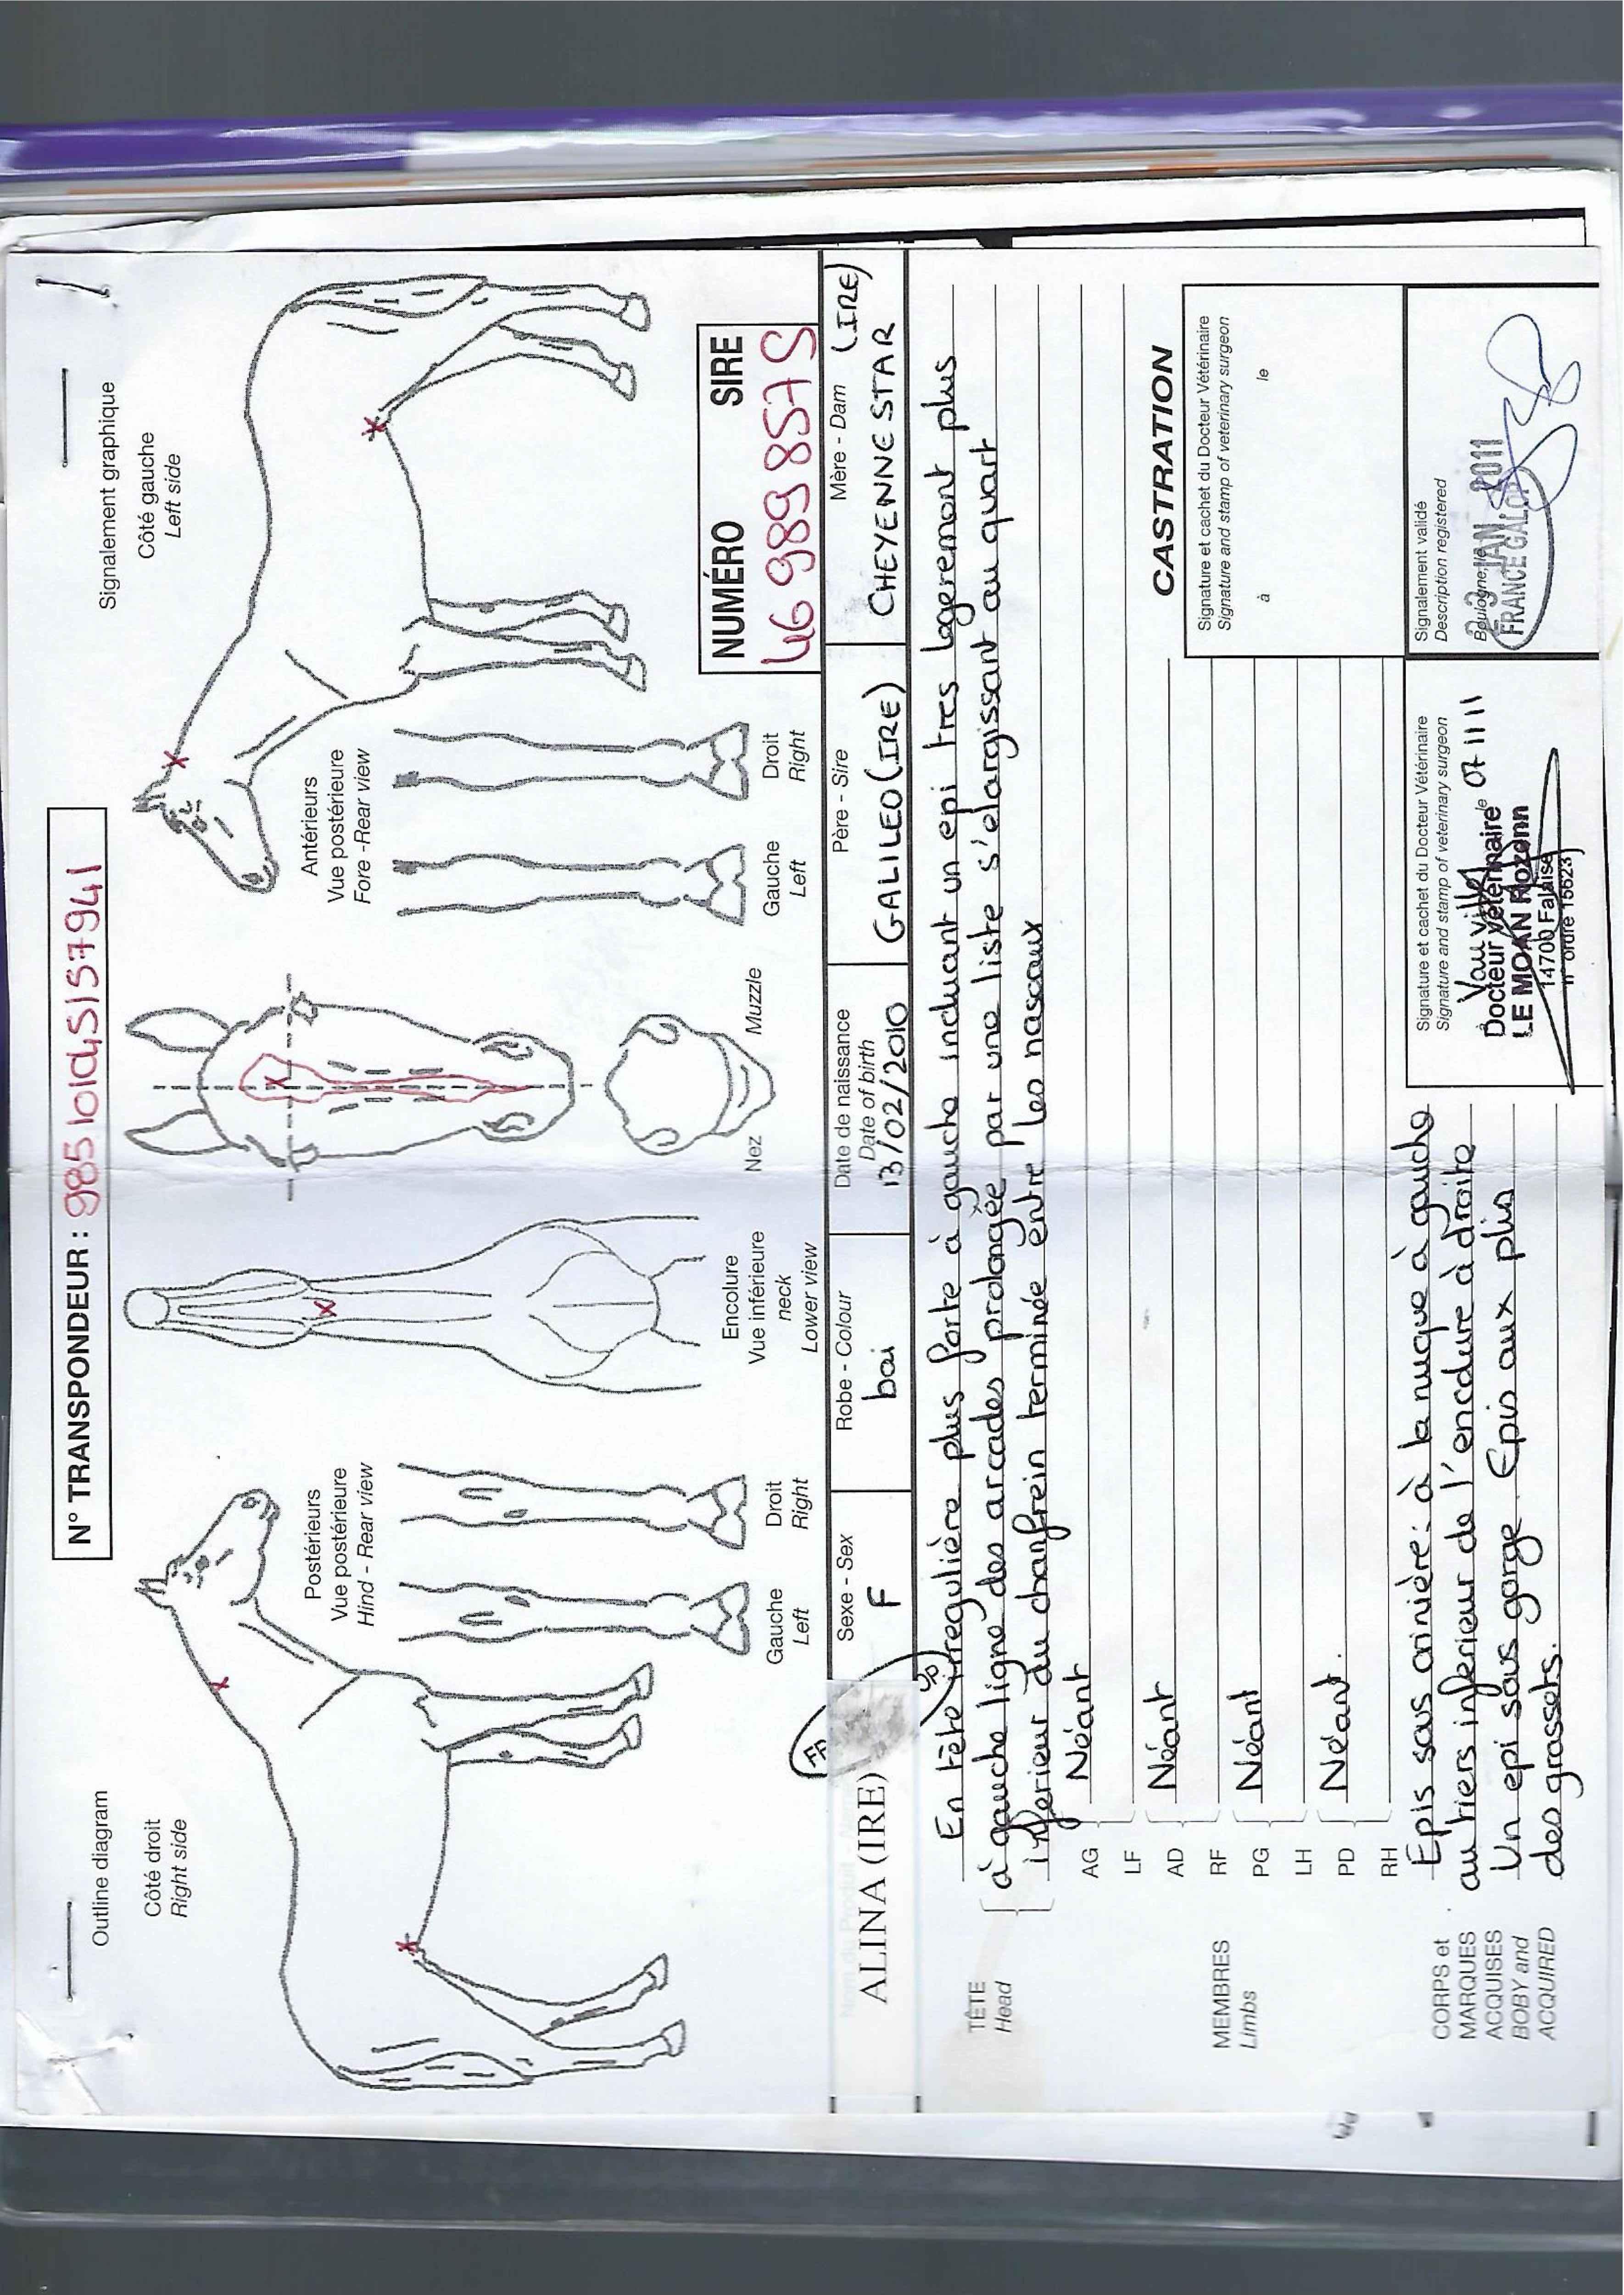 N° TRANSPONDEUR : 985101045157941
Outline diagram
Signalement graphique
Côté droit
Right side
Côté gauche
Left side
Postérieurs
Vue postérieure
Hind - Rear view
Gauche
Left
Droit
Right
Encolure
Vue inférieure
neck
Lower view
Nez
Muzzle
Antérieurs
Vue postérieure
Fore -Rear view
Gauche
Left
Droit
Right
NUMÉRO SIRE
46 989 857 S
ALINA (IRE)
Sexe - Sex
F
Robe - Colour
bai
Date de naissance
Date of birth
13/02/2010
Père - Sire
GALILEO (IRE)
Mère - Dam (IRE)
CHEYENNE STAR
TÊTE
Head
En tête irregulière plus forte à gauche incluant un epi tres legerement plus
à gauche ligne des arcades prolongée par une liste s'elargissant au quart
inferieur du chanfrein terminée entre les naseaux
MEMBRES
Limbs
AG
LF
Néant
AD
RF
Néant
PG
LH
Néant
PD
RH
Néant.
CASTRATION
Signature et cachet du Docteur Vétérinaire
Signature and stamp of veterinary surgeon
à le
CORPS et
MARQUES
ACQUISES
BOBY and
ACQUIRED
Epis sous crinière : à la nuque à gauche
au tiers inferieur de l'encolure à droite
Un epi sous gorge. Epis aux plis
des grassets.
Signature et cachet du Docteur Vétérinaire
Signature and stamp of veterinary surgeon
le 07 11 11
Docteur Vétérinaire
LE MOAN Rozenn
14700 Falaise
n° ordre 15623
Signalement validé
Description registered
Boulogne, le
23 JAN 2011
FRANCE GALOP